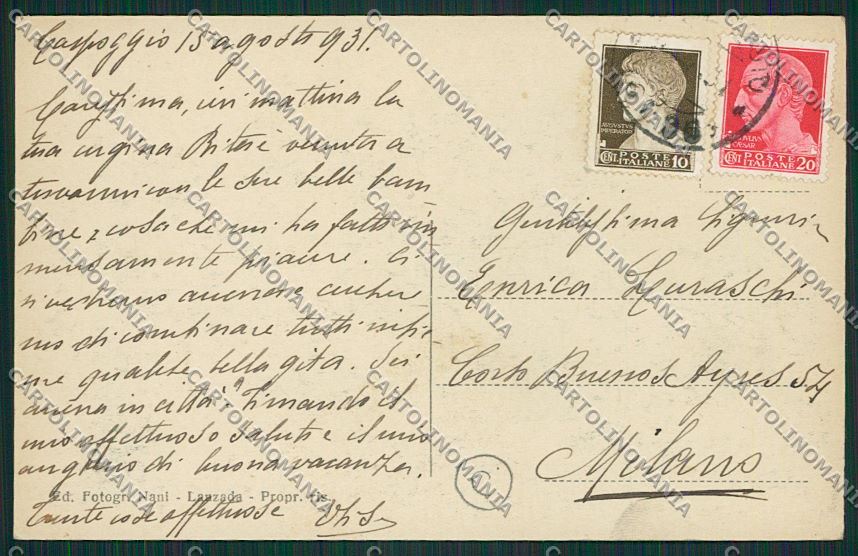 Caspoggio 15 agosto 931.
Carissima, ieri mattina la
tua cugina è venuta a
trovarmi con le sue belle bam
bine, cosa che mi ha fatto im
mensamente piacere. Ci
rivedremo ancora e
mo di combinare tutti insie
me qualche bella gita. Sei
ancora in città? Timando il
mio affettuoso saluti e il mio
augurio di buona vacanza.
Tante cose affettuose
Ed. Fotogr. Nani - Lanzada - Propr. ris.
AVGVSTVS
IMPERATOR
CENT. POSTE ITALIANE 10
CAESAR
CENT. POSTE ITALIANE 20
Gentilissima Signorin
Enrica Muraschi
Corso Buenos Ayres 54
Milano
CARTOLINOMANIA